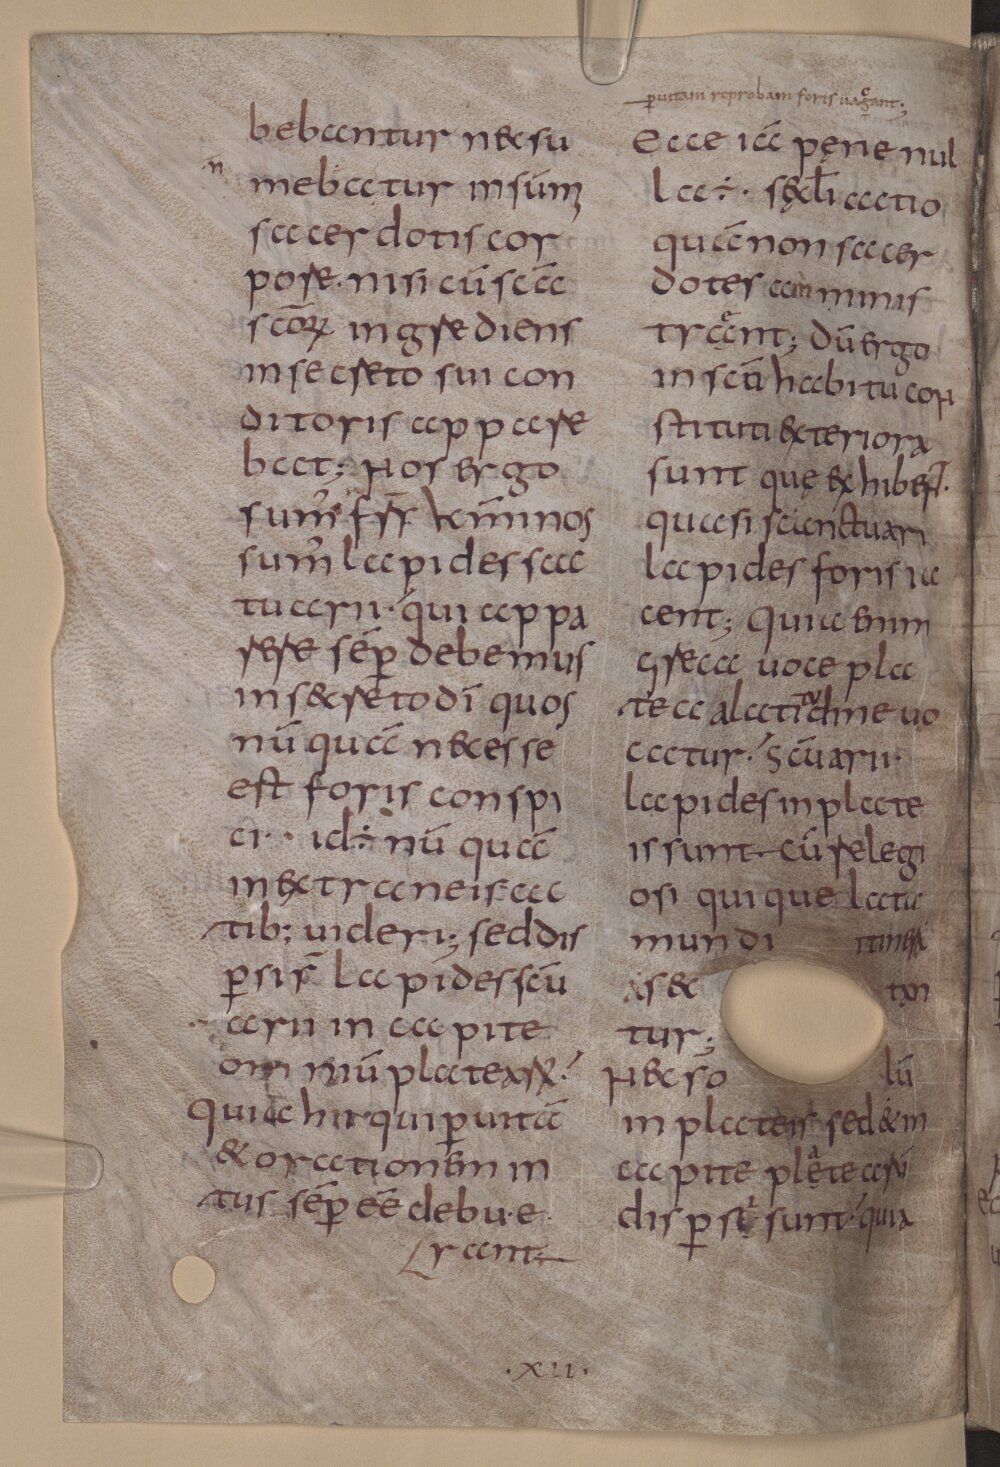 bebantur nec su
n
mebatur in sūm;
sacerdotis cor
pore· nisi cū scā
scōꝝ ingrediens
in secreto sui con
ditoris appare
bat; Nos ergo
sum' frs̄ kmī nos
sum' lapides sanc
tuarii· qui appa
rere sēꝑ debemus
in secreto dī quos
nū quā necesse
est foris conspi
ci·· id÷ nū quā
in extraneis ac
tib; uideri; sed dis
ꝑsi s̄ lapides scū
arii in capite
omniū platearū·
Quia hii qui ꝑ uitā
& orationem in
tus sēꝑ eē debue
rant;
ꝑ uitam reprobam foris uagant;
Ecce iā pene nul
la÷· sęcl̄i actio
quā non sacer
dotes amminis
trant; dū ergo
in scō habitu con
stituti exteriora
sunt quę exhibent·
quasi sanctuarii
lapides foris ia
cent; Quia enim
greca uoce pla
tea a latitudine uo
catur· Scūarii
lapides in plate
is sunt· cū relegi
osi quique lata
mundi itinera
sec tan
tur;
Nec so lū
in plateis sed & in
capite platearū
disꝑsi sunt· quia
·XII·